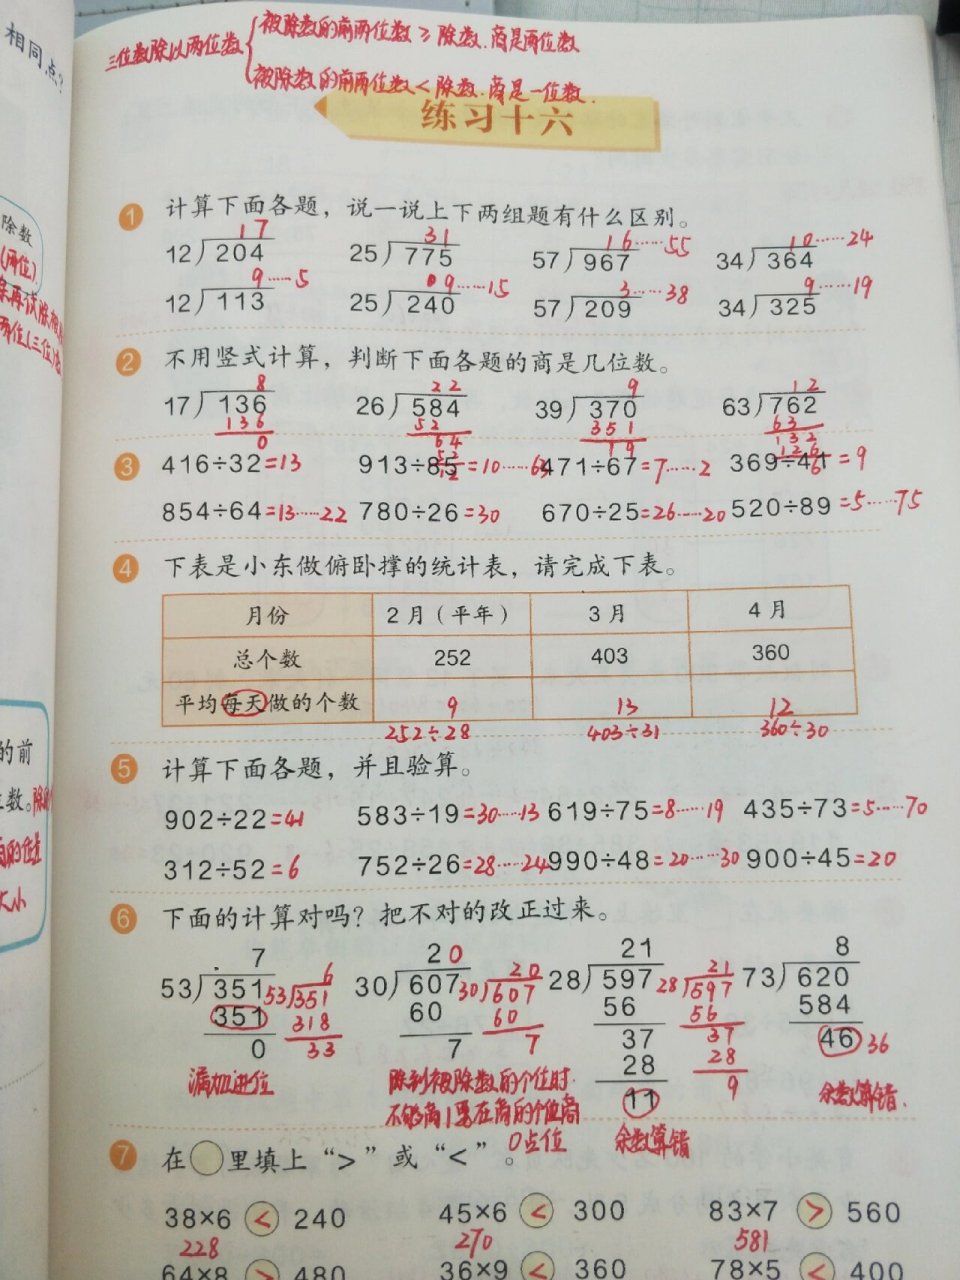 相同点?
三位数除以两位数
被除数的前两位数 ≥ 除数.商是两位数
被除数的前两位数 < 除数.商是一位数.
练习十六
除数
(两位)
1 计算下面各题，说一说上下两组题有什么区别。
17 31 16……55 10……24
12)204 25)775 57)967 34)364
9……5 09……15 3……38 9……19
12)113 25)240 57)209 34)325
2 不用竖式计算，判断下面各题的商是几位数。
8 22 9 12
17)136 26)584 39)370 63)762
136 52 351 63
0 64 19 132
52 126
12 6
3 416÷32=13 913÷85=10……63 471÷67=7……2 369÷41=9
854÷64=13……22 780÷26=30 670÷25=26……20 520÷89=5……75
4 下表是小东做俯卧撑的统计表，请完成下表。
月份 2月（平年） 3月 4月
总个数 252 403 360
平均每天做的个数 9 13 12
252÷28 403÷31 360÷30
的前
数。
5 计算下面各题，并且验算。
902÷22=41 583÷19=30……13 619÷75=8……19 435÷73=5……70
312÷52=6 752÷26=28……24 990÷48=20……30 900÷45=20
大小
6 下面的计算对吗？把不对的改正过来。
7 6 20 20 21 21 8
53)351 53)351 30)607 30)607 28)597 28)597 73)620
351 318 60 60 56 56 584
0 33 7 7 37 37 46 36
28 28
11 9
漏加进位
除到被除数的个位时
不够商1要在商的个位商
0占位
余数算错
余数算错.
7 在○里填上“>”或“<”。
38×6 < 240 45×6 < 300 83×7 > 560
228 270 581
64×8 > 480 36×9 < 360 78×5 < 400